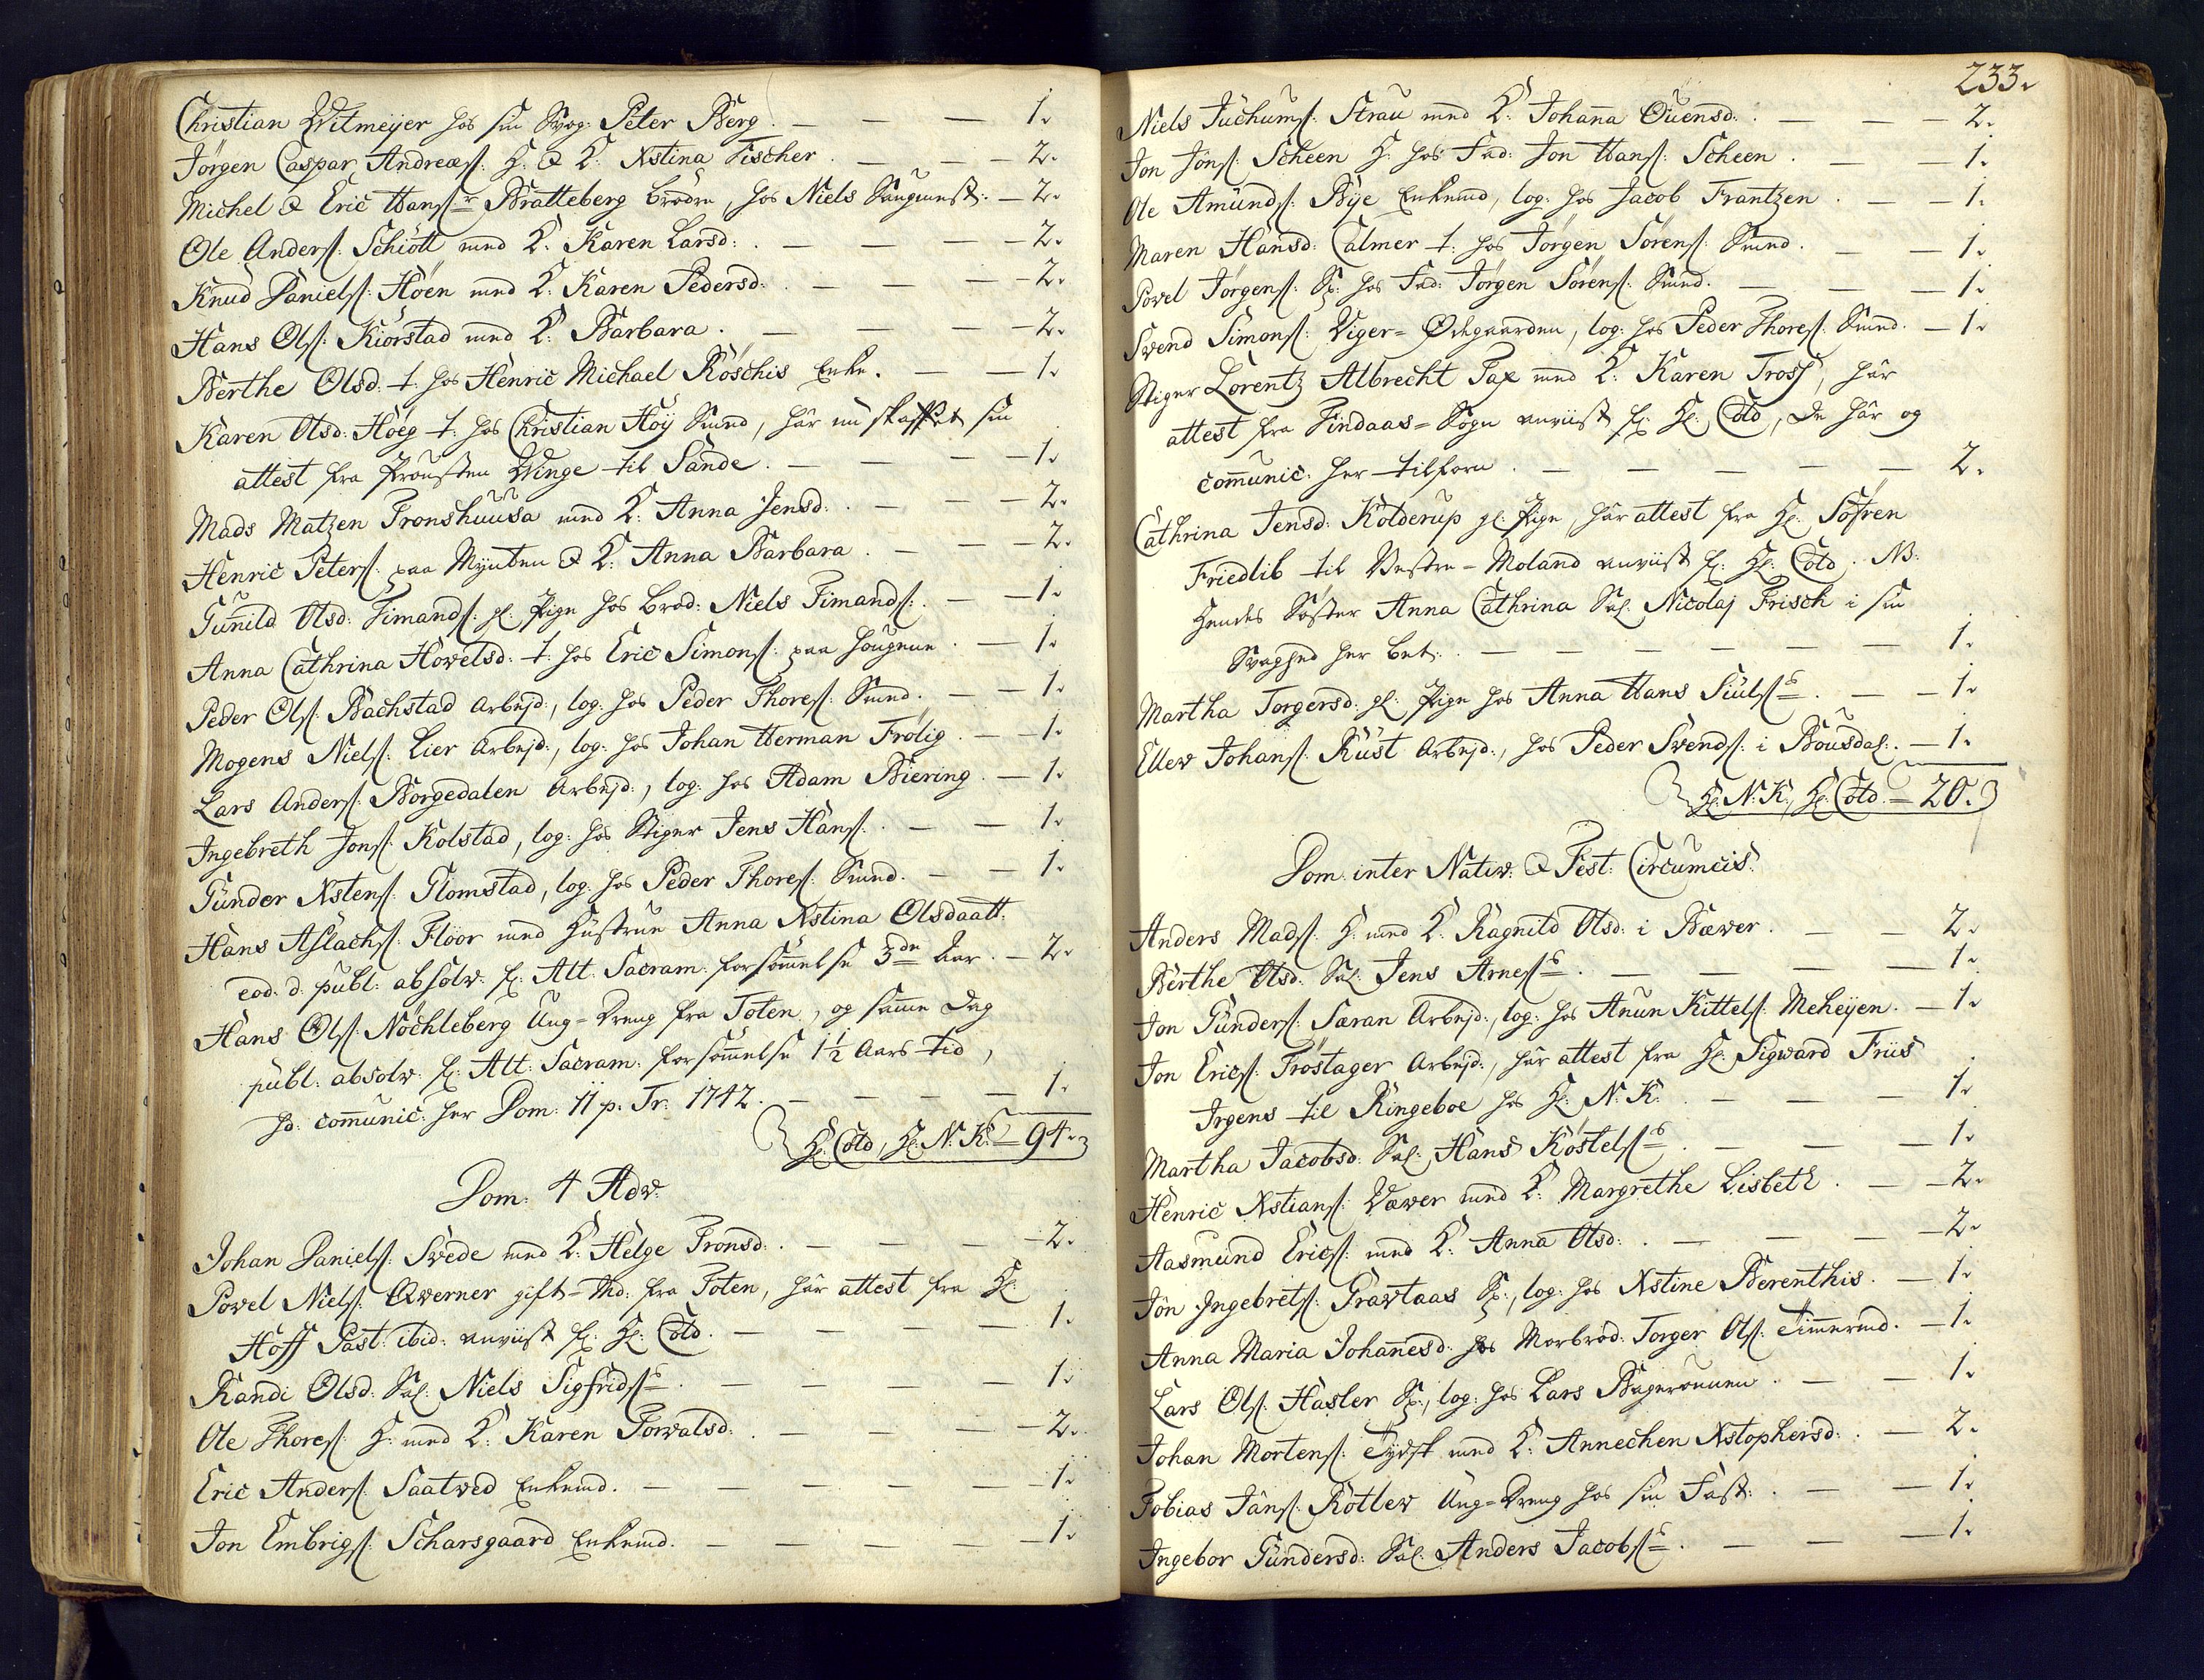 Christian Witmeÿer hos sin Svog: Peter Berg. — — — 1.
Jörgen Caspar Andreæs: H. & K: Xstina Fischer. — — — 2.
Michel & Eric Hans: Bratteberg brödre, hos Niels Saugmest: — 2.
Ole Anders: Schiött med K: Karen Larsd: — — — 2.
Knud Daniels: Höen med K: Karen Pedersd: — — — 2.
Hans Ols: Kiörstad med K: Barbara. — — — 2.
Berthe Olsd: t: hos Henric Michael Röschis Enke. — — 1.
Karen Olsd: Höeg t: hos Christian Höÿ Smed, har nu skaffet sin
attest fra Prousten Winge til Sande. — — — 1.
Mads Matzen Tronshuusa med K: Anna Jensd: — — — 2.
Henric Peters: paa Mÿnten & K: Anna Barbara. — — — 2.
Gunild Olsd: Timands: gl: Pige hos brod: Niels Timands: — — 1.
Anna Cathrina Hovelsd: t: hos Eric Simons: paa Hougene. — 1.
Peder Ols: Bachstad Arbejd:, log: hos Peder Thores: Smed. — — 1.
Mogens Niels: Lier Arbejd:, log: hos Johan Herman Frölig. — 1.
Lars Anders: Borgedalen Arbejd:, log: hos Adam Biering. — 1.
Ingebreth Jons: Kolstad, log: hos Stiger Jens Hans: — — 1.
Gunder Xstens: Glomstad, log: hos Peder Thores: Smed. — — 1.
Hans Aslachs: Flöor med Hustrue Anna Xstina Olsdaatt:
eod: d: publ: absolv: f: Alt: Sacram: forsömmelse 3de Aar. — 2.
Hans Ols: Nöchleberg Ung-Dreng fra Toten, og samme Dag
publ: absolv: f: Alt: Sacram: forsömmelse 1½ Aars tid,
hd: communic: her Dom: 11 p. Tr. 1742. — — — 1.
Hr: Cold, Hr: N. K: — 94.
Dom: 4 Adv:
Johan Daniels: Svede med K: Helge Tronsd: — — — 2.
Povel Niels: Qverner gift-Md: fra Toten, har attest fra Hr:
Hoff Past: ibid: anviist f: Hr: Cold. — — — 1.
Randi Olsd: Sal: Niels Sigfrids: — — — 1.
Ole Thores: H: med K: Karen Torvalsd: — — — 2.
Eric Anders: Saatved Enkemd. — — — 1.
Jon Embrigs: Scharsgaard Enkemd. — — — 1.
233.
Niels Juchums: Strau med K: Johanna Ouensd: — — — 2.
Jon Jöns: Scheen H: hos Fad: Jon Hans: Scheen. — — 1.
Ole Amunds: Bÿe Enkemd, log: hos Jacob Frantzen. — — 1.
Maren Hansd: Calmer t: hos Jörgen Sörens: Smed. — — 1.
Povel Jörgens: Sp: hos Fad: Jörgen Sörens: Smed. — — — 1.
Svend Simons: Viger-Ödegaarden, log: hos Peder Thores: Smed. — 1.
Stiger Lorentz Albrecht Pax med K: Karen Tross, har
attest fra Findaas-Sogn anviist f: Hr: Cold, de har og
communic: her tilforn. — — — 2.
Cathrina Jensd: Kolderup gl: Pige, har attest fra Hr: Söfren
Friedlib til Vestre-Moland anviist f: Hr: Cold. NB:
hendes Söster Anna Cathrina Sal: Nicolaj Frisch i sin
Svaghed her bet: — — — 1.
Martha Torgersd: gl: Pige hos Anna Hans Siuls: — — 1.
Ellev Johans: Rust Arbejd:, hos Peder Svends: i Bousdal: — 1.
Hr: N. K, Hr: Cold. — 20.
Dom. inter Nativ: & Fest: Circumcis:
Anders Mads: H: med K: Ragnild Olsd: i Bæver. — — 2.
Berthe Olsd: Sal: Jens Arnes: — — — 1.
Jon Gunders: Særan Arbejd:, log: hos Anun Kittels: Meheÿen. — 1.
Jon Erics: Tröstager Arbejd:, har attest fra Hr: Sigvard Friis
Irgens til Ringeboe hos Hr: N. K: — — — 1.
Martha Jacobsd: Sal: Hans Köstels: — — — 1.
Henric Xstians: Væver med K: Margrethe Lisbeth. — — 2.
Aasmund Erics: med K: Anna Olsd: — — — 2.
Jön Ingebrets: Gravtaas Sp:, log: hos Xstine Berenthis. — 1.
Anna Maria Johannesd: hos Morbrod: Torger Ols: Timmermd. — 1.
Lars Ols: Hasler Sp:, log: hos Lars Bageronnen. — — 1.
Johan Mortens: Tÿdsk med K: Annechen Xstophersd: — 2.
Tobias Jans: Rotlev Ung-Dreng hos sin Fast: — — 1.
Ingebor Gundersd: Sal: Anders Jacobs: — — — 1.